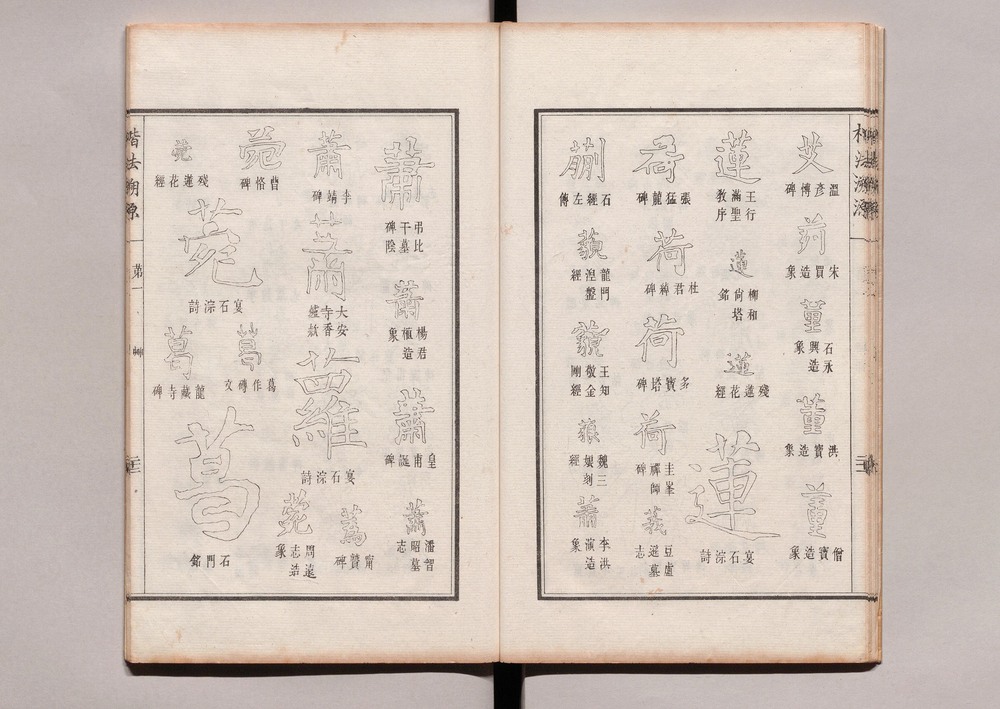 艾
溫彥博碑
宋買造象
董
石永興造象
董
洪寶造象
董
僧寶造象
蓮
王行滿聖教序
蓮
柳和尙塔銘
蓮
殘蓮花經
蓮
宴石淙詩
荷
張猛龍碑
荷
杜君綽碑
荷
多寶塔碑
荷
圭峯禪師碑
豆盧遜墓志
莂
石經左傳
藐
龍門湼盤經
藐
王知敬金剛經
魏三娘刻經
蕭
李洪演造象
蕭
弔比干墓碑陰
蕭
楊君植造象
蕭
皇甫誕碑
蕭
潘智昭墓志
蕭
李靖碑
蕭
大安寺香爐欵
蘿
宴石淙詩
甯贊碑
菀
周遠志造象
菀
曹恪碑
菀
殘蓮花經
菀
宴石淙詩
葛
葛作磚文
葛
龍藏寺碑
葛
石門銘
楷法溯原
第一
艸